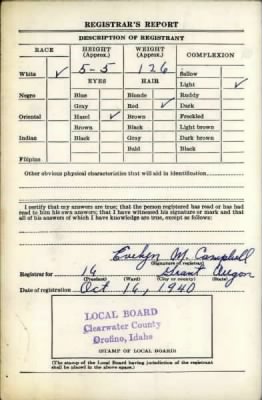 REGISTRAR'S REPORT
DESCRIPTION OF REGISTRANT
RACE HEIGHT (Approx.) WEIGHT (Approx.) COMPLEXION
White ✓ 5-5 126 Sallow
EYES HAIR Light ✓
Negro Blue Blonde Ruddy
Gray Red ✓ Dark
Oriental Hazel ✓ Brown Freckled
Brown Black Light brown
Indian Black Gray Dark brown
Bald Black
Filipino
Other obvious physical characteristics that will aid in identification
I certify that my answers are true; that the person registered has read or has had
read to him his own answers; that I have witnessed his signature or mark and that
all of his answers of which I have knowledge are true, except as follows:
Evelyn M. Campbell
(Signature of registrar)
Registrar for 16 Grant Oregon
(Precinct) (Ward) (City or county) (State)
Date of registration Oct 16, 1940
LOCAL BOARD
Clearwater County
Orofino, Idaho
(STAMP OF LOCAL BOARD)
(The stamp of the Local Board having jurisdiction of the registrant
shall be placed in the above space.)